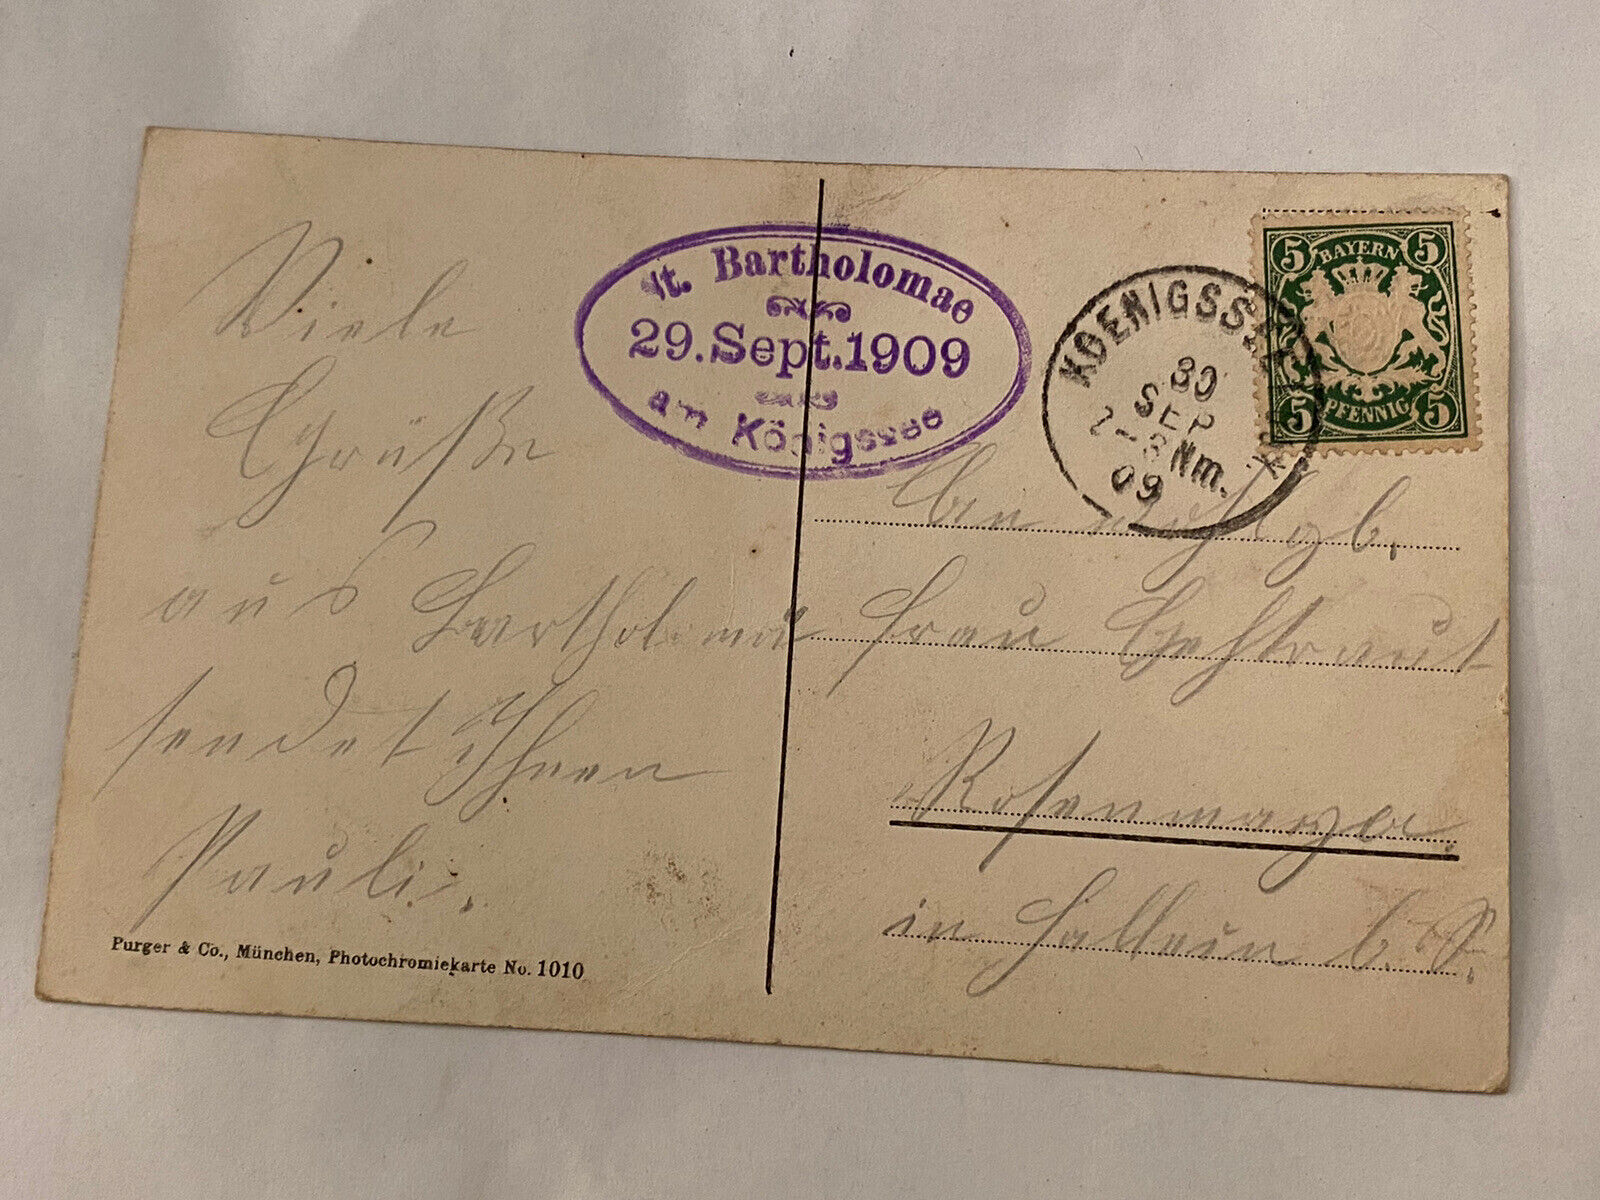 Viele
Grüße
aus Bartholomä
sendet Ihnen
Pauli.
Purger & Co., München, Photochromiekarte No. 1010
St. Bartholomae
29. Sept. 1909
am Königssee
KOENIGSSEE
30
SEP
7-8 Nm.
09
5 BAYERN 5
5 PFENNIG 5
An wohlgb.
Frau
Rosenmayer
in Hallein b. S.